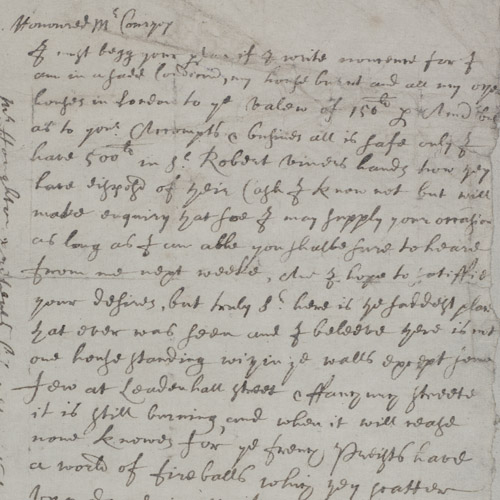 Honoured Mr Conyers
I must begg your if I write nonsence for I
am in a sadd Condicond, my house burnt and all my oyr
houses in London to ye valew of 150li p And
as to yor Accompts & busines all is safe only I
have 500li in Sr Robert Viners hands how yey
have disposd of yeir Cash I know not but will
make enquiry yat soe I may supply your occasion
as long as I am able you shalbe sure to heare
from me next weeke, and I hope to
your desires, but truly Sr here is ye saddest place
yat ever was seen and I beleeve yere is not
one house standing within ye walls except some
few at Leadenhall street & ffany streete
it is still burning, and when it will cease
none knowes for ye french Preists have
a world of fireballs which yey scatter